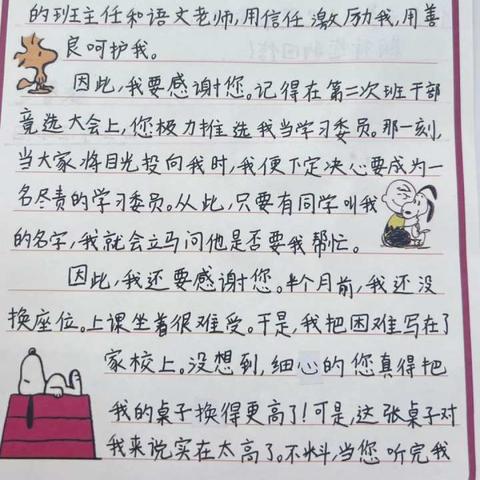 的班主任和语文老师,用信任激励我,用善
良呵护我。
因此,我要感谢您。记得在第二次班干部
竟选大会上,您极力推选我当学习委员。那一刻,
当大家将目光投向我时,我便下定决心要成为一
名尽责的学习委员。从此,只要有同学叫我
的名字,我就会立马问他是否要我帮忙。
因此,我还要感谢您。半个月前,我还没
换座位。上课坐着很难受。于是,我把困难写在了
家校上。没想到,细心的您真得把
我的桌子换得更高了!可是,这张桌子对
我来说实在太高了。不料,当您听完我